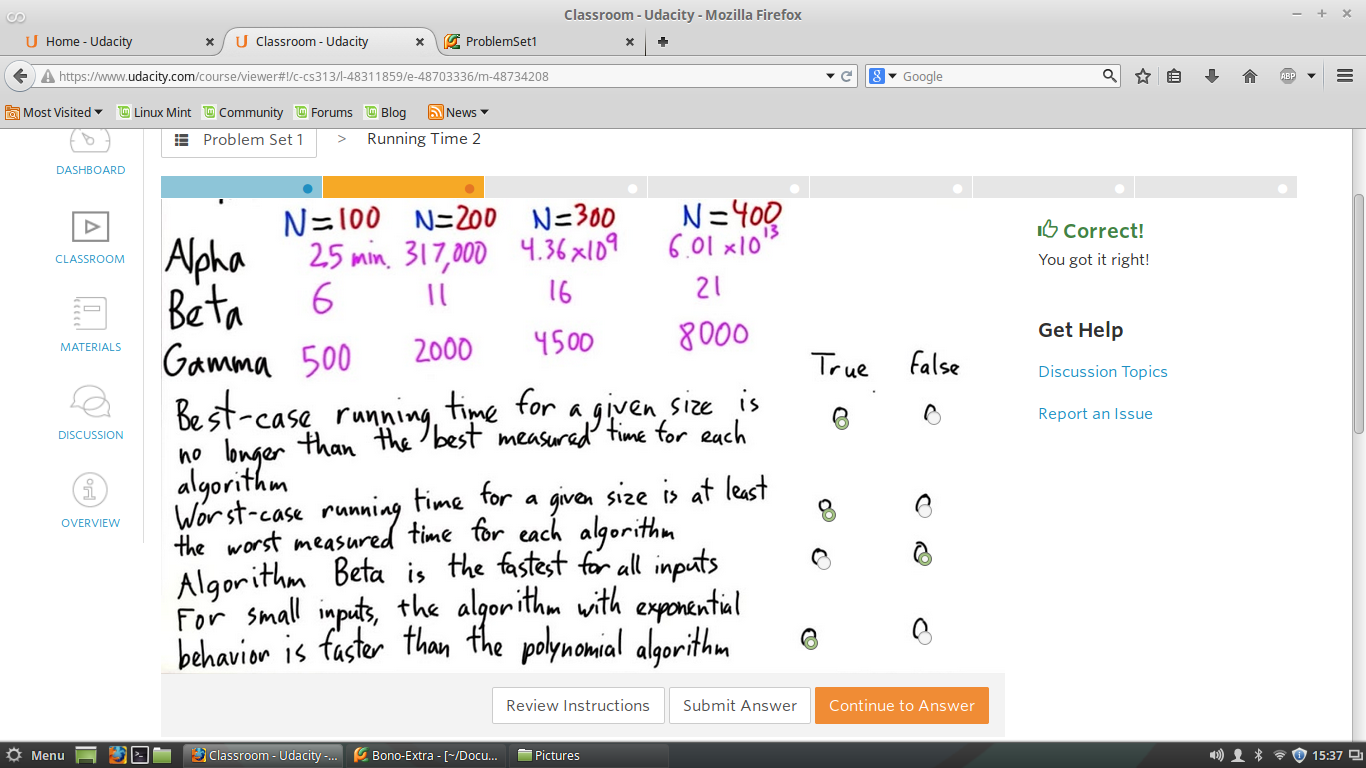 Classroom - Udacity - Mozilla Firefox
Home - Udacity
Classroom - Udacity
ProblemSet1
https://www.udacity.com/course/viewer#!/c-cs313/l-48311859/e-48703336/m-48734208
Google
ABP
Most Visited
Linux Mint
Community
Forums
Blog
News
Problem Set 1 > Running Time 2
DASHBOARD
CLASSROOM
MATERIALS
DISCUSSION
OVERVIEW
N=100 N=200 N=300 N=400
Alpha 25 min. 317,000 4.36×10^9 6.01×10^13
Beta 6 11 16 21
Gamma 500 2000 4500 8000
True False
Best-case running time for a given size is
no longer than the best measured time for each
algorithm
Worst-case running time for a given size is at least
the worst measured time for each algorithm
Algorithm Beta is the fastest for all inputs
For small inputs, the algorithm with exponential
behavior is faster than the polynomial algorithm
Correct!
You got it right!
Get Help
Discussion Topics
Report an Issue
Review Instructions
Submit Answer
Continue to Answer
Menu
Classroom - Udacity -...
Bono-Extra - [~/Docu...
Pictures
15:37